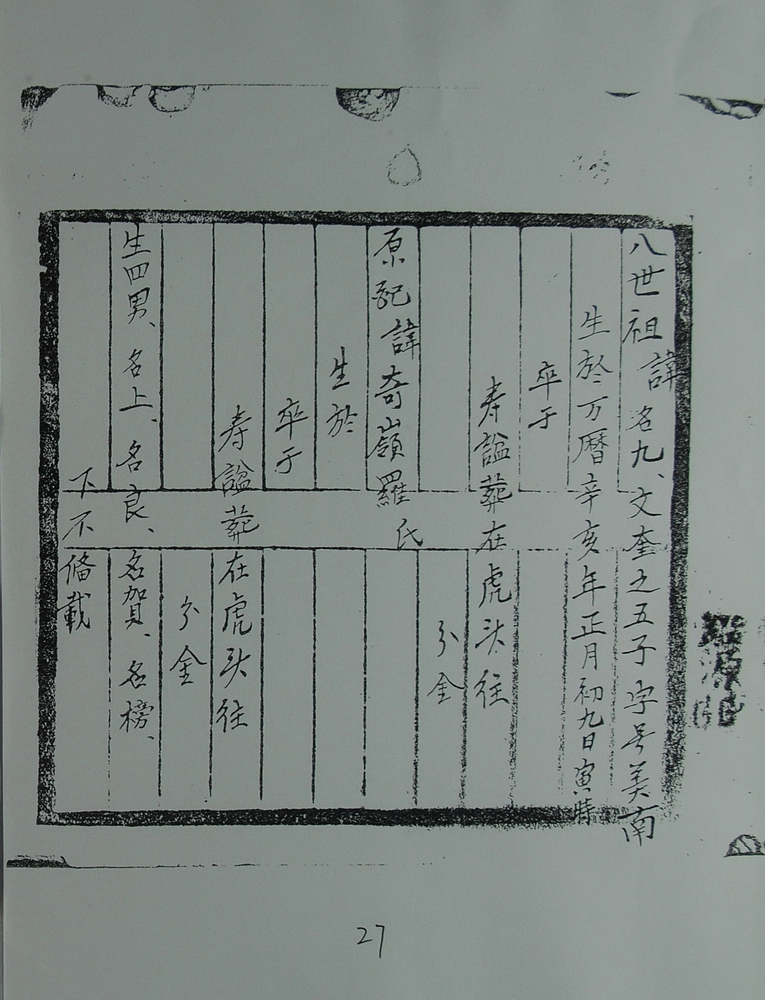 八世祖諱名九、文奎之五子字号美南
生於万曆辛亥年正月初九日寅時
卒于
寿諡葬在虎头徃
分金
原配諱奇嶺羅氏
生於
卒于
寿諡葬在虎头徃
分金
生四男、名上、名良、名賀、名榜、
下不俻載
27